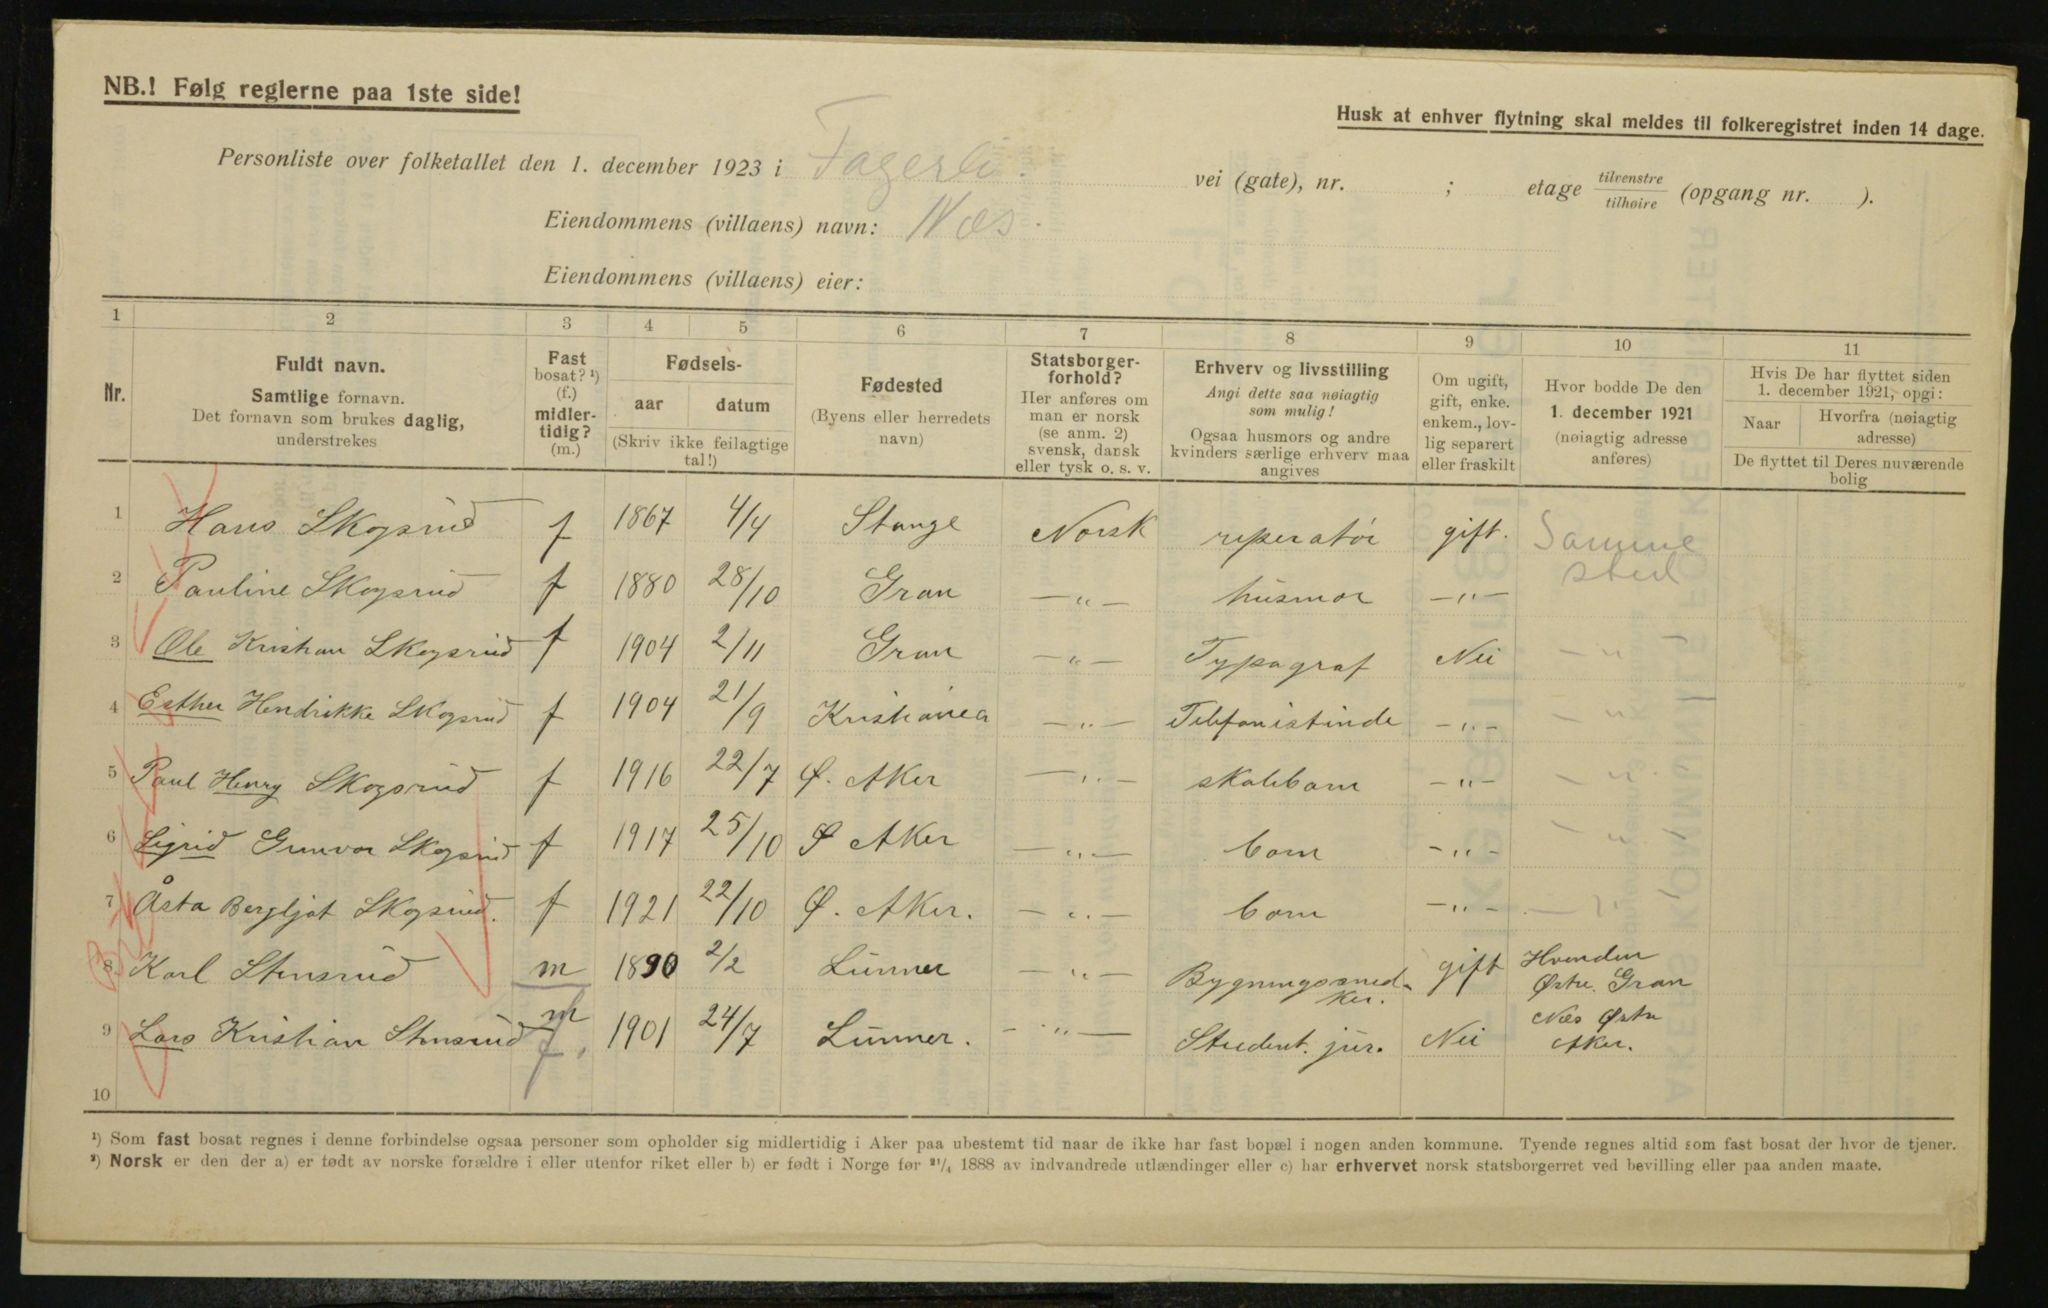 NB.! Følg reglerne paa 1ste side!
Husk at enhver flytning skal meldes til folkeregistret inden 14 dage.
Personliste over folketallet den 1. december 1923 i Fagerli. vei (gate), nr. ; etage tilvenstre/tilhøire (opgang nr. ).
Eiendommens (villaens) navn: Næs.
Eiendommens (villaens) eier:
1 2 3 4 5 6 7 8 9 10 11
Nr.
Fuldt navn.
Samtlige fornavn.
Det fornavn som brukes daglig,
understrekes
Fast
bosat? ¹)
(f.)
midler-
tidig?
(m.)
Fødsels-
aar datum
(Skriv ikke feilagtige
tal!)
Fødested
(Byens eller herredets
navn)
Statsborger-
forhold?
Her anføres om
man er norsk
(se anm. 2)
svensk, dansk
eller tysk o. s. v.
Erhverv og livsstilling
Angi dette saa nøiagtig
som mulig!
Ogsaa husmors og andre
kvinders særlige erhverv maa
angives
Om ugift,
gift, enke.
enkem., lov-
lig separert
eller fraskilt
Hvor bodde De den
1. december 1921
(nøiagtig adresse
anføres)
Hvis De har flyttet siden
1. december 1921, opgi:
Naar Hvorfra (nøiagtig
adresse)
De flyttet til Deres nuværende
bolig
1 Hans Skogsrud f 1867 4/4 Stange Norsk reperatør gift. Samme
sted
2 Pauline Skogsrud f 1880 28/10 Gran —"— husmor —"—
3 Ole Kristian Skogsrud f 1904 2/11 Gran —"— Typograf Nei —"
4 Esther Hendrikke Skogsrud f 1904 21/9 Kristiania —"— Telefonistinde —"— —"
5 Paul Henry Skogsrud f 1916 22/7 Ø. Aker —"— skolebarn —"— —"
6 Sigrid Gunvor Skogsrud f 1917 25/10 Ø Aker —"— barn —"— —"
7 Åsta Bergljot Skogsrud. f 1921 22/10 Ø. Aker. —"— barn —"— —"
8 Karl Stensrud m 1890 2/2 Lunner —"— Bygningssned-
ker. gift Hvenden
Østre Gran
9 Lars Kristian Stensrud m f. 1901 24/7 Lunner. —"— Student. jur. Nei Næs Østre
Aker.
10
¹) Som fast bosat regnes i denne forbindelse ogsaa personer som opholder sig midlertidig i Aker paa ubestemt tid naar de ikke har fast bopæl i nogen anden kommune. Tyende regnes altid som fast bosat der hvor de tjener.
²) Norsk er den der a) er født av norske forældre i eller utenfor riket eller b) er født i Norge før 21/4 1888 av indvandrede utlændinger eller c) har erhvervet norsk statsborgerret ved bevilling eller paa anden maate.